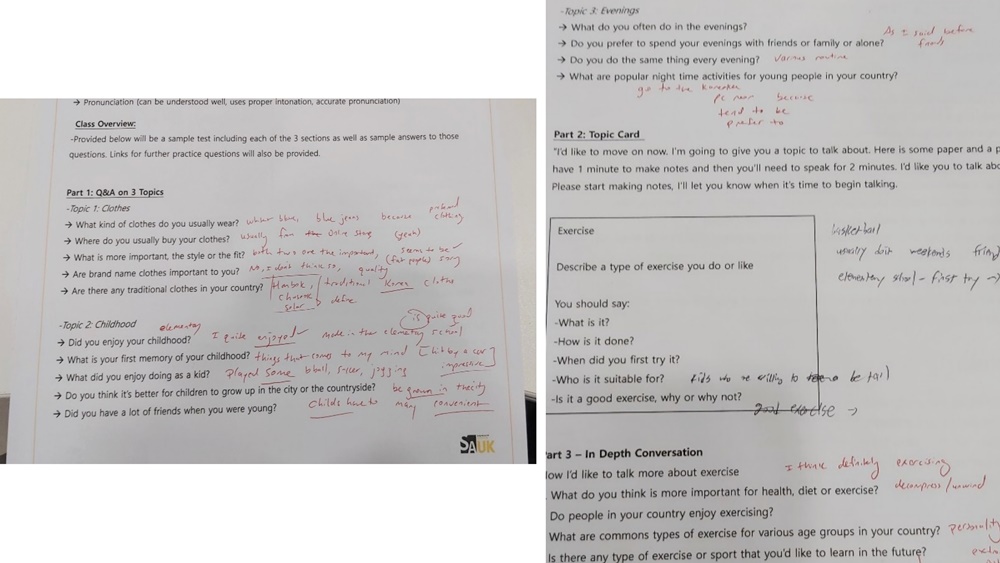 → Pronunciation (can be understood well, uses proper intonation, accurate pronunciation)
Class Overview:
-Provided below will be a sample test including each of the 3 sections as well as sample answers to those
questions. Links for further practice questions will also be provided.
Part 1: Q&A on 3 Topics
-Topic 1: Clothes
→ What kind of clothes do you usually wear? blue jeans because
clothing
→ Where do you usually buy your clothes? usually (yeah)
→ What is more important, the style or the fit? both two are the important, seems to be
→ Are brand name clothes important to you? No, I don't think so, quality (fat people) sorry
→ Are there any traditional clothes in your country? Hanbok, traditional Korea cloths
define
-Topic 2: Childhood
elementary is quite good
→ Did you enjoy your childhood? I quite enjoyed made in the elementary school
→ What is your first memory of your childhood? things that comes to my mind [hit by a car]
impressive
→ What did you enjoy doing as a kid? played some bball, soccer, jogging
→ Do you think it's better for children to grow up in the city or the countryside? be grown in the city
→ Did you have a lot of friends when you were young? childs have to many convenient
SAUK
-Topic 3: Evenings
→ What do you often do in the evenings?
As I said before
→ Do you prefer to spend your evenings with friends or family or alone? family
→ Do you do the same thing every evening? various routine
→ What are popular night time activities for young people in your country?
go to the karaoke
PC room because
tend to be
prefer to
Part 2: Topic Card
"I'd like to move on now. I'm going to give you a topic to talk about. Here is some paper and a p
have 1 minute to make notes and then you'll need to speak for 2 minutes. I'd like you to talk abo
Please start making notes, I'll let you know when it's time to begin talking.
Exercise
Describe a type of exercise you do or like
You should say:
-What is it?
-How is it done?
-When did you first try it?
-Who is it suitable for? kids who are willing to be tall
-Is it a good exercise, why or why not?
good exercise →
basketball
usually doit weekends
elementary school - first try →
art 3 – In Depth Conversation
low I'd like to talk more about exercise I think definitely exercising
What do you think is more important for health, diet or exercise? decompress/unwind
Do people in your country enjoy exercising?
What are commons types of exercise for various age groups in your country? personality
Is there any type of exercise or sport that you'd like to learn in the future?